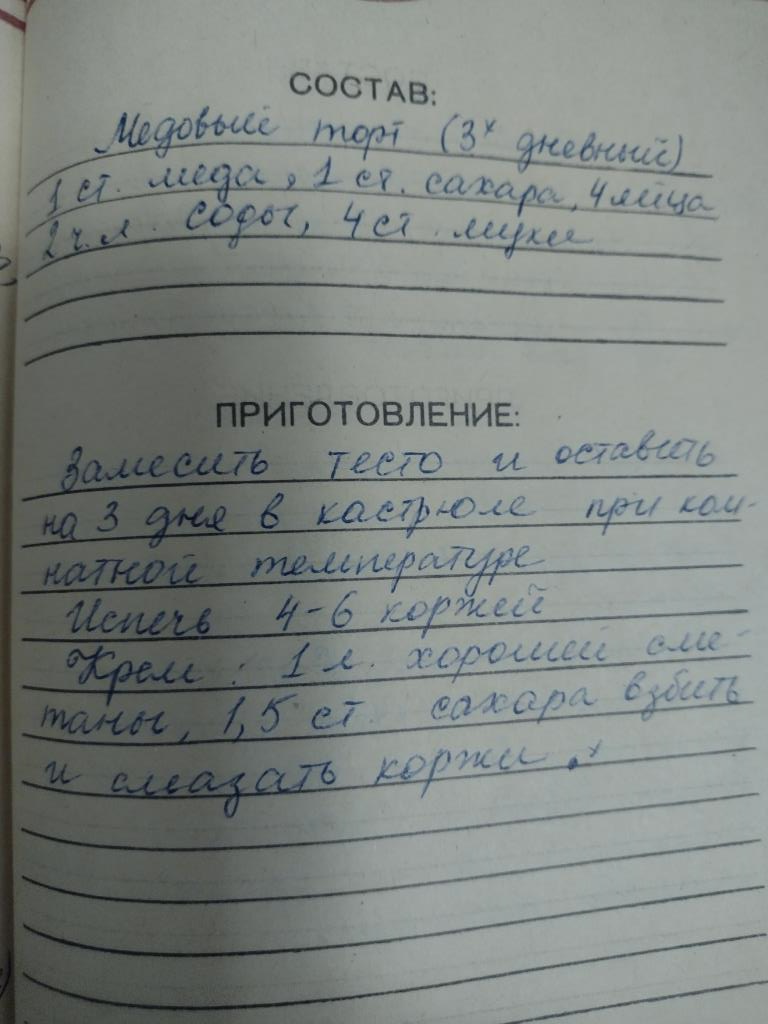 СОСТАВ:
Медовый торт (3х дневный)
1 ст. меда, 1 ст. сахара, 4 яйца
2 ч.л. соды, 4 ст. муки
ПРИГОТОВЛЕНИЕ:
Замесить тесто и оставить
на 3 дня в кастрюле при ком-
натной температуре
Испечь 4-6 коржей
Крем: 1 л. хорошей сме-
таны, 1,5 ст. сахара взбить
и смазать коржи.